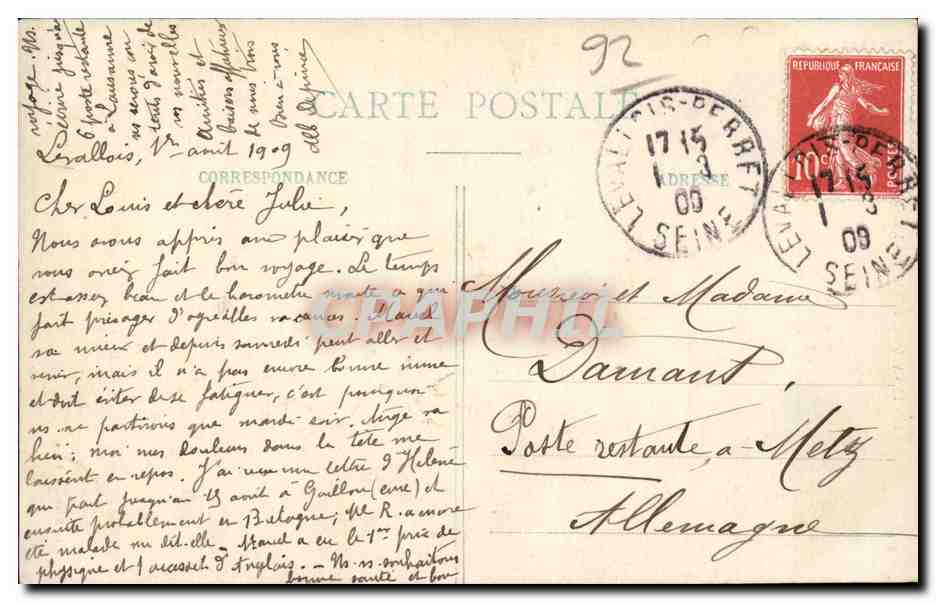 92
RÉPUBLIQUE FRANÇAISE
10c
POSTES
CARTE POSTALE
CORRESPONDANCE
ADRESSE
LEVALLOIS-PERRET
17 15
1 - 8
09
SEINE
LEVALLOIS-PERRET
17 15
1 - 8
09
SEINE
Levallois, 1er août 1909
Cher Louis et chère Julie,
Nous avons appris avec plaisir que
vous aviez fait bon voyage. Le temps
est assez beau et le baromètre monte ce qui
fait présager d'agréables vacances. Marcel
va mieux et depuis samedi peut aller et
venir, mais il n'a pas encore bonne mine
et doit éviter de se fatiguer, c'est pourquoi
ns ne partirons que mardi soir. Ange va
bien; moi mes douleurs dans la tête me
laissent en repos. J'ai reçu une lettre d'Helène
qui part jusqu'au 15 août à Gaillon (eure) et
ensuite probablement en Bretagne; Me R. a encore
été malade me dit-elle - Marcel a eu le 1er prix de
physique et 1 accessit d'Anglais. - Ns. vs. souhaitons
bonne santé et bon
voyage. Ns.
écrire jusqu'au
6 poste restante
à Lausanne
ns serons con
tents d'avoir de
vos nouvelles
Amitiés et
baisers affectueux
de nous trois
Bien à vous
CPAPHIL
Monsieur et Madame
Damant,
Poste restante, à Metz
Allemagne